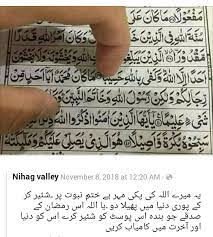 مَفْعُوْلًا مَا كَانَ عَلَى
سُنَّةَ اللّٰهِ فِى الَّذِيْنَ
وَيَخْشَوْنَهٗ وَلَا يَخْشَوْنَ
اَحَدًا اِلَّا اللّٰهَ وَكَفٰى بِاللّٰهِ حَسِيْبًا مَا كَانَ اَبَآ اَحَدٍ مِّنْ
رِّجَالِكُمْ وَلٰكِنْ رَّسُوْلَ اللّٰهِ وَخَاتَمَ النَّبِيّٖنَ
الَّذِيْنَ اٰمَنُوا اذْكُرُوا اللّٰهَ
هُوَ الَّذِيْ يُصَلِّيْ عَلَيْكُمْ وَمَلٰٓئِكَتُهٗ
Nihag valley November 8, 2018 at 12:20 AM
یہ میرے اللہ کی پکی مہر ہے ختم نبوت پر۔شئیر کر
کے پوری دنیا میں پھیلا دو۔یا اللہ اس رمضان کے
صدقے جو بندہ اس پوسٹ کو شئیر کرے اس کو دنیا
اور آخرت میں کامیاب کریں